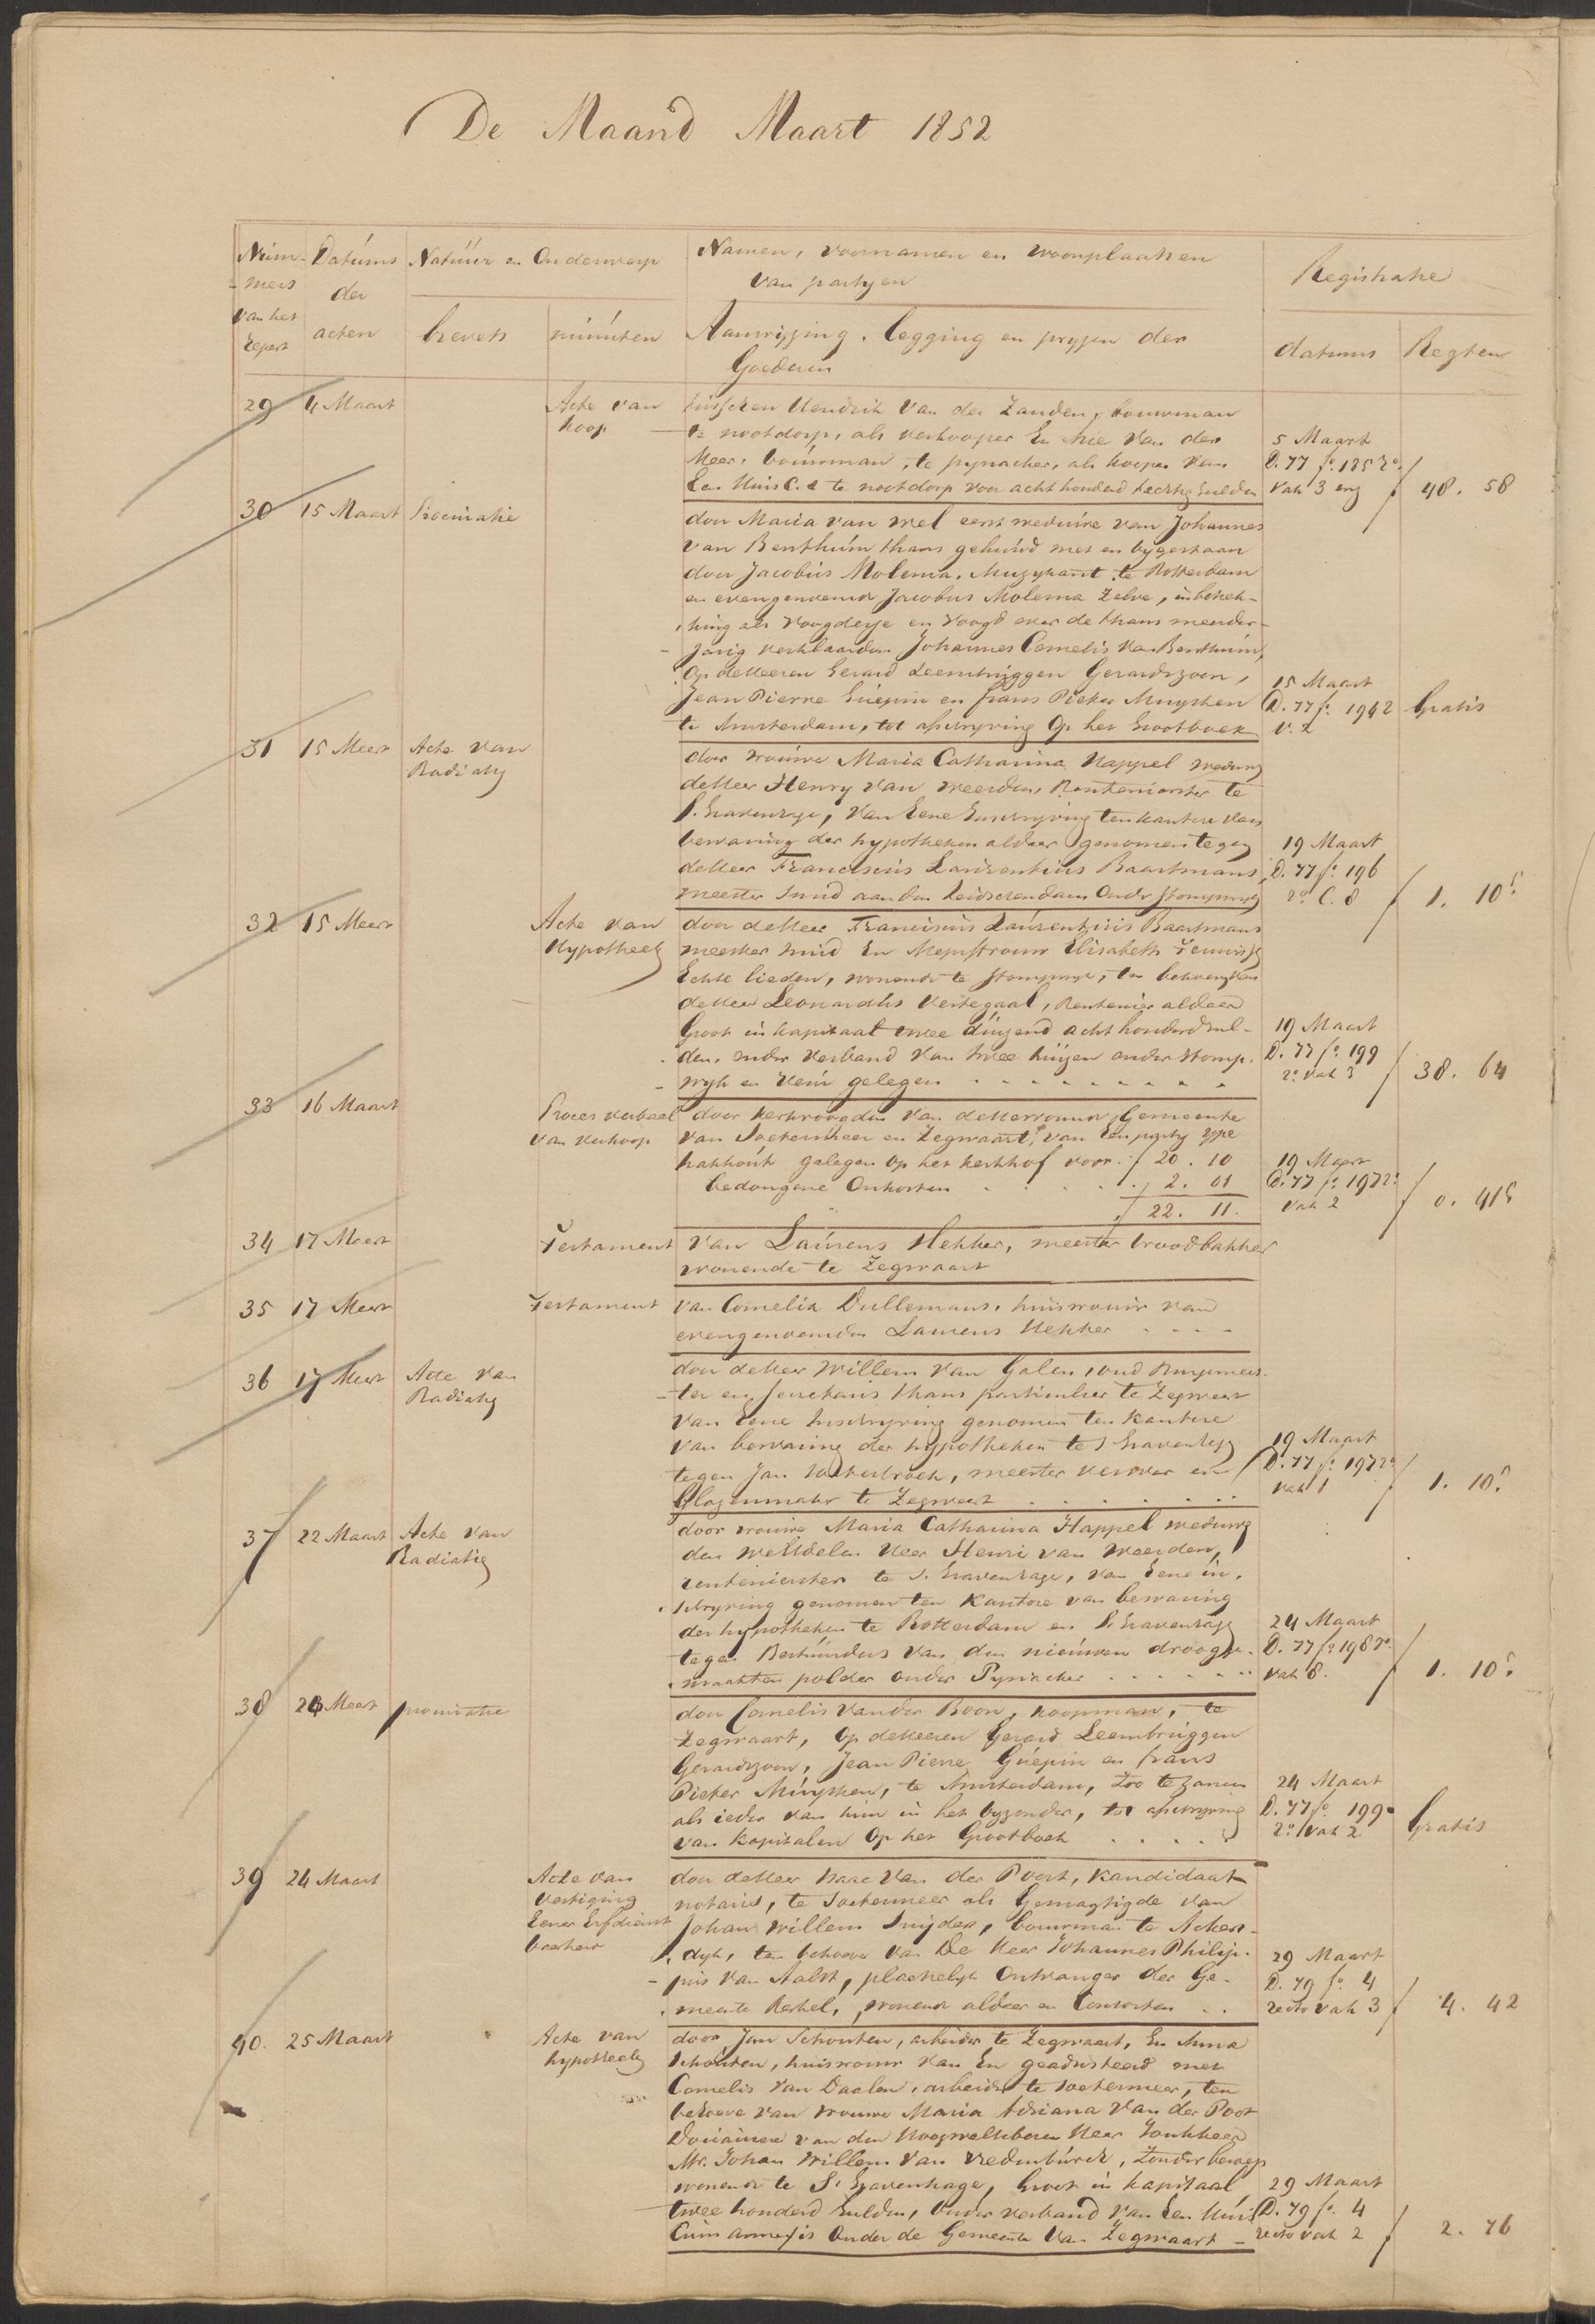 De Maand Maart 1852
Num- Datums Natuur en Onderwerp Namen, voornamen en woonplaatsen
- mers der van partyen Registratie
van het
Repert acten brevets minuten Aanwijzing, legging en pryzen der datums Regten
Goederen
29 4 Maart Acte van tusschen Hendrik van der Zanden, bouwman
koop te nootdorp, als verkooper En Arie van der 5 Maart
Meer, bouwman, te pynacker, als kooper van D. 77 fo. 195 ro.
Een Huis C. a te nootdorp voor acht honderd sechtig Gulden vak 3 enz f 48. 58
30 15 Maart Procuratie door Maria van Mel eerst weduwe van Johannes
van Benthum thans gehuwd met en bygestaan
door Jacobus Molema, Muzykant te Rotterdam
en evengenoemde Jacobus Molema Zelve, in betrek-
- king als Voogdesse en Voogd over de thans meerder-
- jarig verklaarden Johannes Cornelis van Benthum,
Op deHeeren Gerard Leembruggen Gerardszoon, 15 Maart
Jean Pierre Guépin en frans Pieter Muysken D. 77 fo. 194 2 Gratis
te Amsterdam, tot afschryving Op het Grootboek v. 2
31 15 Meert Acte van door vrouwe Maria Catharina Happel weduwe
Radiatie deHeer Henry van Weerden, Rentenierster te
S. Gravenhage, van Eene Inschryving ten kantore van
bewaring der hypotheken aldaar genomen tegen 19 Maart
deHeer Franciscus Laurentius Baartmans, D. 77 fo. 196
meester Smid aan den Leidschendam Onder Stompwyk ro C. 8 f 1. 10 5
32 15 Meert Acte van door deHeer Franciscus Laurentius Baartmans
Hypotheek meester Smid En Mejuffrouw Elisabeth Teunisse
Echte lieden, wonende te Stompwyk, ten behoeve van
deHeer Leonardus Vertegaal, Rentenier aldaar
Groot in kapitaal twee duizend acht honderd Gul- 19 Maart
- den, onder verband van twee huizen onder Stomp- D. 77 fo. 199
- wyk en Veur gelegen ro vak 3 f 38. 64
33 16 Maart Proces verbaal door kerkvoogden van deHervormde Gemeente
van verkoop van Soetermeer en Zegwaart, van Een party ype
hakhout gelegen op het kerkhof voor f 20. 10 19 Meert
bedongene Onkosten f 2. 01 D. 77 fo. 197 2o
f 22. 11. vak 2 f 0. 41 5
34 17 Meert Testament van Laurens Hekker, meester broodbakker
wonende te Zegwaart
35 17 Meert Testament van Cornelia Dullemans, huisvrouw van
evengenoemden Laurens Hekker
36 17 Meert Acte van door deHeer Willem van Galen, oud Burgemees-
Radiatie - ter en Secretaris thans particulier te Zegwaart
van Eene Inschryving genomen ten kantore
van bewaring der hypotheken te S Gravenhage 19 Maart
tegen Jan , meester verwer en D. 77 fo. 197 2o
Glazenmaker te Zegwaart vak 1 f 1. 10 5
37 22 Maart Acte van door vrouwe Maria Catharina Happel weduwe
Radiatie den WelEdelen Heer Henri van Weerden,
rentenierster te S. Gravenhage, van Eene in-
- schryving genomen ten Kantore van bewaring
der hypotheken te Rotterdam en S. Gravenhage 24 Maart
tegen Bestuurders van den nieuwen droogge- D. 77 fo 198 ro.
- maakten polder onder Pynacker vak 8. f 1. 10 5
38 24 Meert procuratie door Cornelis van der Boon, koopman, te
Zegwaart, Op deHeeren Gerard Leembruggen
Gerardszoon, Jean Pierre Guépin en frans
Pieter Muysken, te Amsterdam, Zoo te zamen 24 Maart
als ieder van hun in het byzonder, tot afschryving D. 77 fo. 199
van kapitalen Op het Grootboek 2o vak 2 Gratis
39 24 Maart Acte van door deHeer Isaac van der Poort, Kandidaat
vestiging notaris, te Soetermeer als Gemagtigde van
Eener Erfdienst Johan Willem Snijder, bouwman te Acker-
baarheid - dyk, ten behoeve van De Heer Johannes Philip- 29 Maart
- pus van Aalst, plaatselyk Ontvanger der Ge- D. 79 fo. 4
- meente Berkel, wonende aldaar en Consorten recto vak 3 f 4. 42
40. 25 Maart Acte van door Jan Schouten, arbeider te Zegwaart, En Anna
hypotheek Schouten, huisvrouw van En geadsisteerd met
Cornelis van Daalen, arbeider te Soetermeer, ten
behoeve van vrouwe Maria Adriana van der Poot
Douairiere van den Hoogwelgeboren Heer Jonkheer
Mr. Johan Willem van Vredenburch, Zonder beroep
wonende te S. Gravenhage, Groot in kapitaal 29 Maart
twee honderd Gulden, Onder verband van Een Huis D. 79 fo. 4
Cum annexis Onder de Gemeente van Zegwaart recto vak 2 f 2. 76